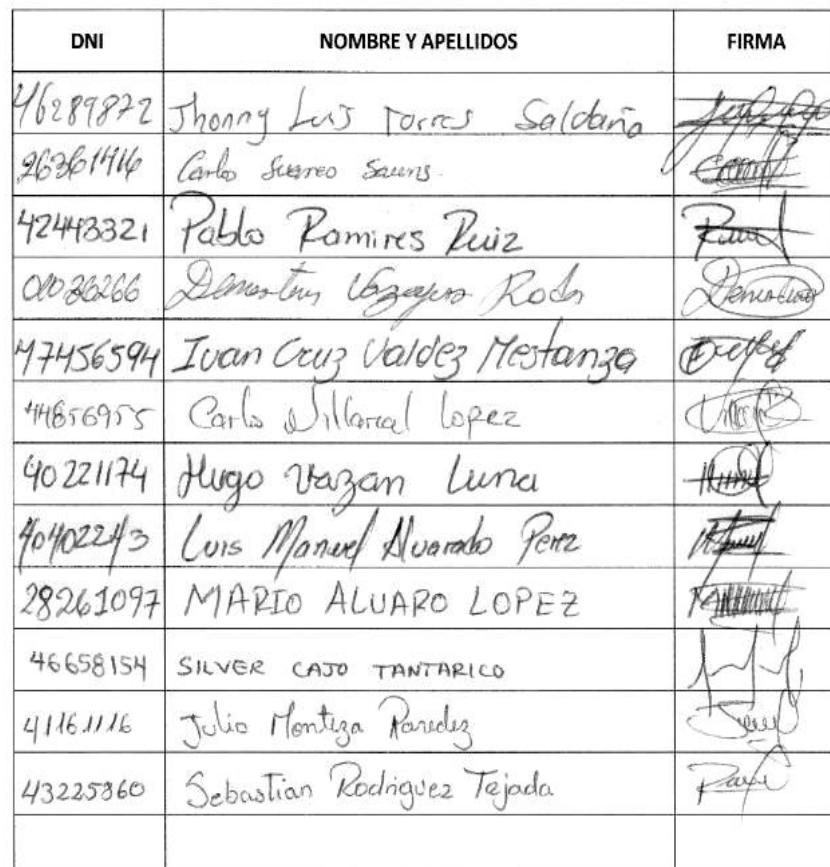 DNI NOMBRE Y APELLIDOS FIRMA
46289872 Jhonny Luis Torres Saldaña
26361416 Carlo
42443321 Pablo Ramires Ruiz
Rods
47456594 Ivan Cruz Valdez Mestanza
44856955 Carlo Villareal Lopez
40221174 Hugo Vazan Luna
40402243 Luis Manuel Alvarado Perez
28261097 MARIO ALVARO LOPEZ
46658154 SILVER CAJO TANTARICO
41161116 Julio Monteza Paredez
43225860 Sebastian Rodriguez Tejada